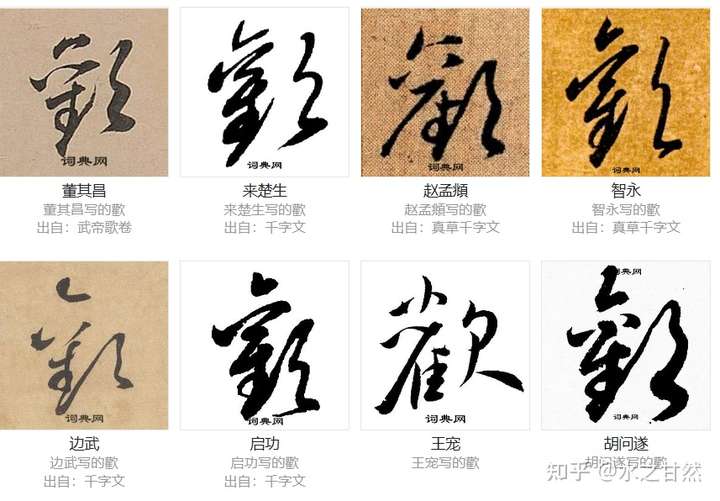 歡 歡 歡 歡
词典网 词典网 词典网 词典网
董其昌 来楚生 赵孟頫 智永
董其昌写的歡 来楚生写的歡 赵孟頫写的歡 智永写的歡
出自：武帝歌卷 出自：千字文 出自：真草千字文 出自：真草千字文
词典网
歡 歡 歡 歡
词典网 词典网 词典网 词典网
边武 启功 王宠 胡问遂
边武写的歡 启功写的歡 王宠写的歡 胡问遂写的歡
出自：千字文 出自：千字文
知乎 @水之甘然